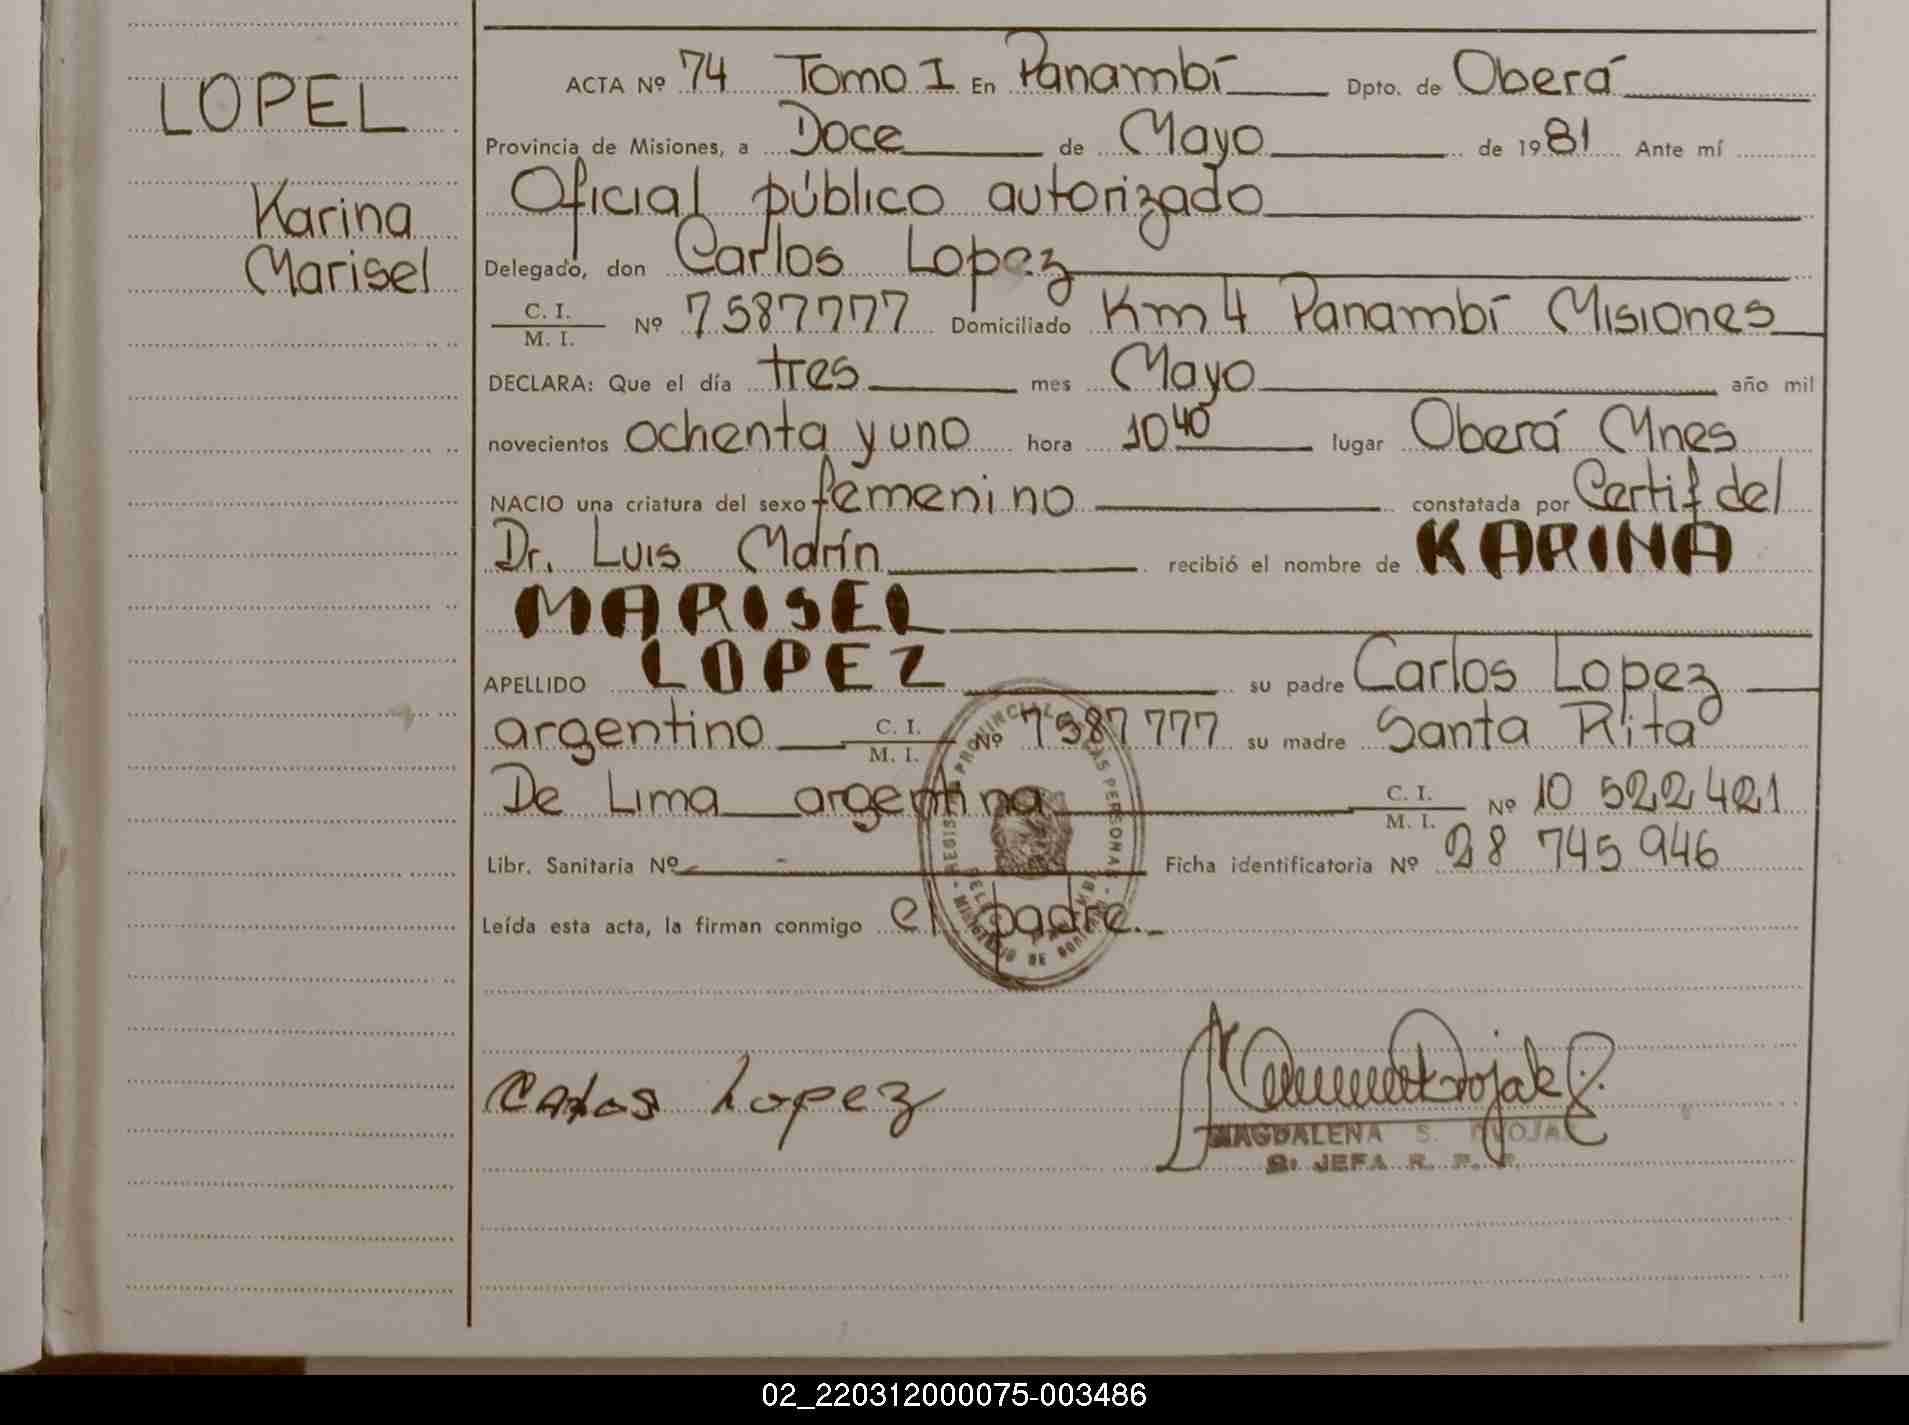 LOPEL
Karina
Marisel
ACTA Nº 74 Tomo I En Panambí Dpto. de Oberá
Provincia de Misiones, a Doce de Mayo de 1981 Ante mí
Oficial público autorizado
Delegado, don Carlos Lopez
C. I.
M. I. Nº 7587777 Domiciliado Km 4 Panambí Misiones
DECLARA: Que el día tres mes Mayo año mil
novecientos ochenta y uno hora 10 40 lugar Oberá Mnes
NACIO una criatura del sexo femenino constatada por Certif del
Dr. Luis Marín recibió el nombre de KARINA
MARISEL
APELLIDO LOPEZ su padre Carlos Lopez
argentino C. I.
M. I. Nº 7587777 su madre Santa Rita
De Lima argentina C. I.
M. I. Nº 10 522421
Libr. Sanitaria Nº - Ficha identificatoria Nº 28 745 946
Leída esta acta, la firman conmigo el padre.
REGISTRO PROVINCIAL DE LAS PERSONAS
MINISTERIO DE GOBIERNO
Carlos Lopez
MAGDALENA S.
JEFA R. P. P.
02_220312000075-003486